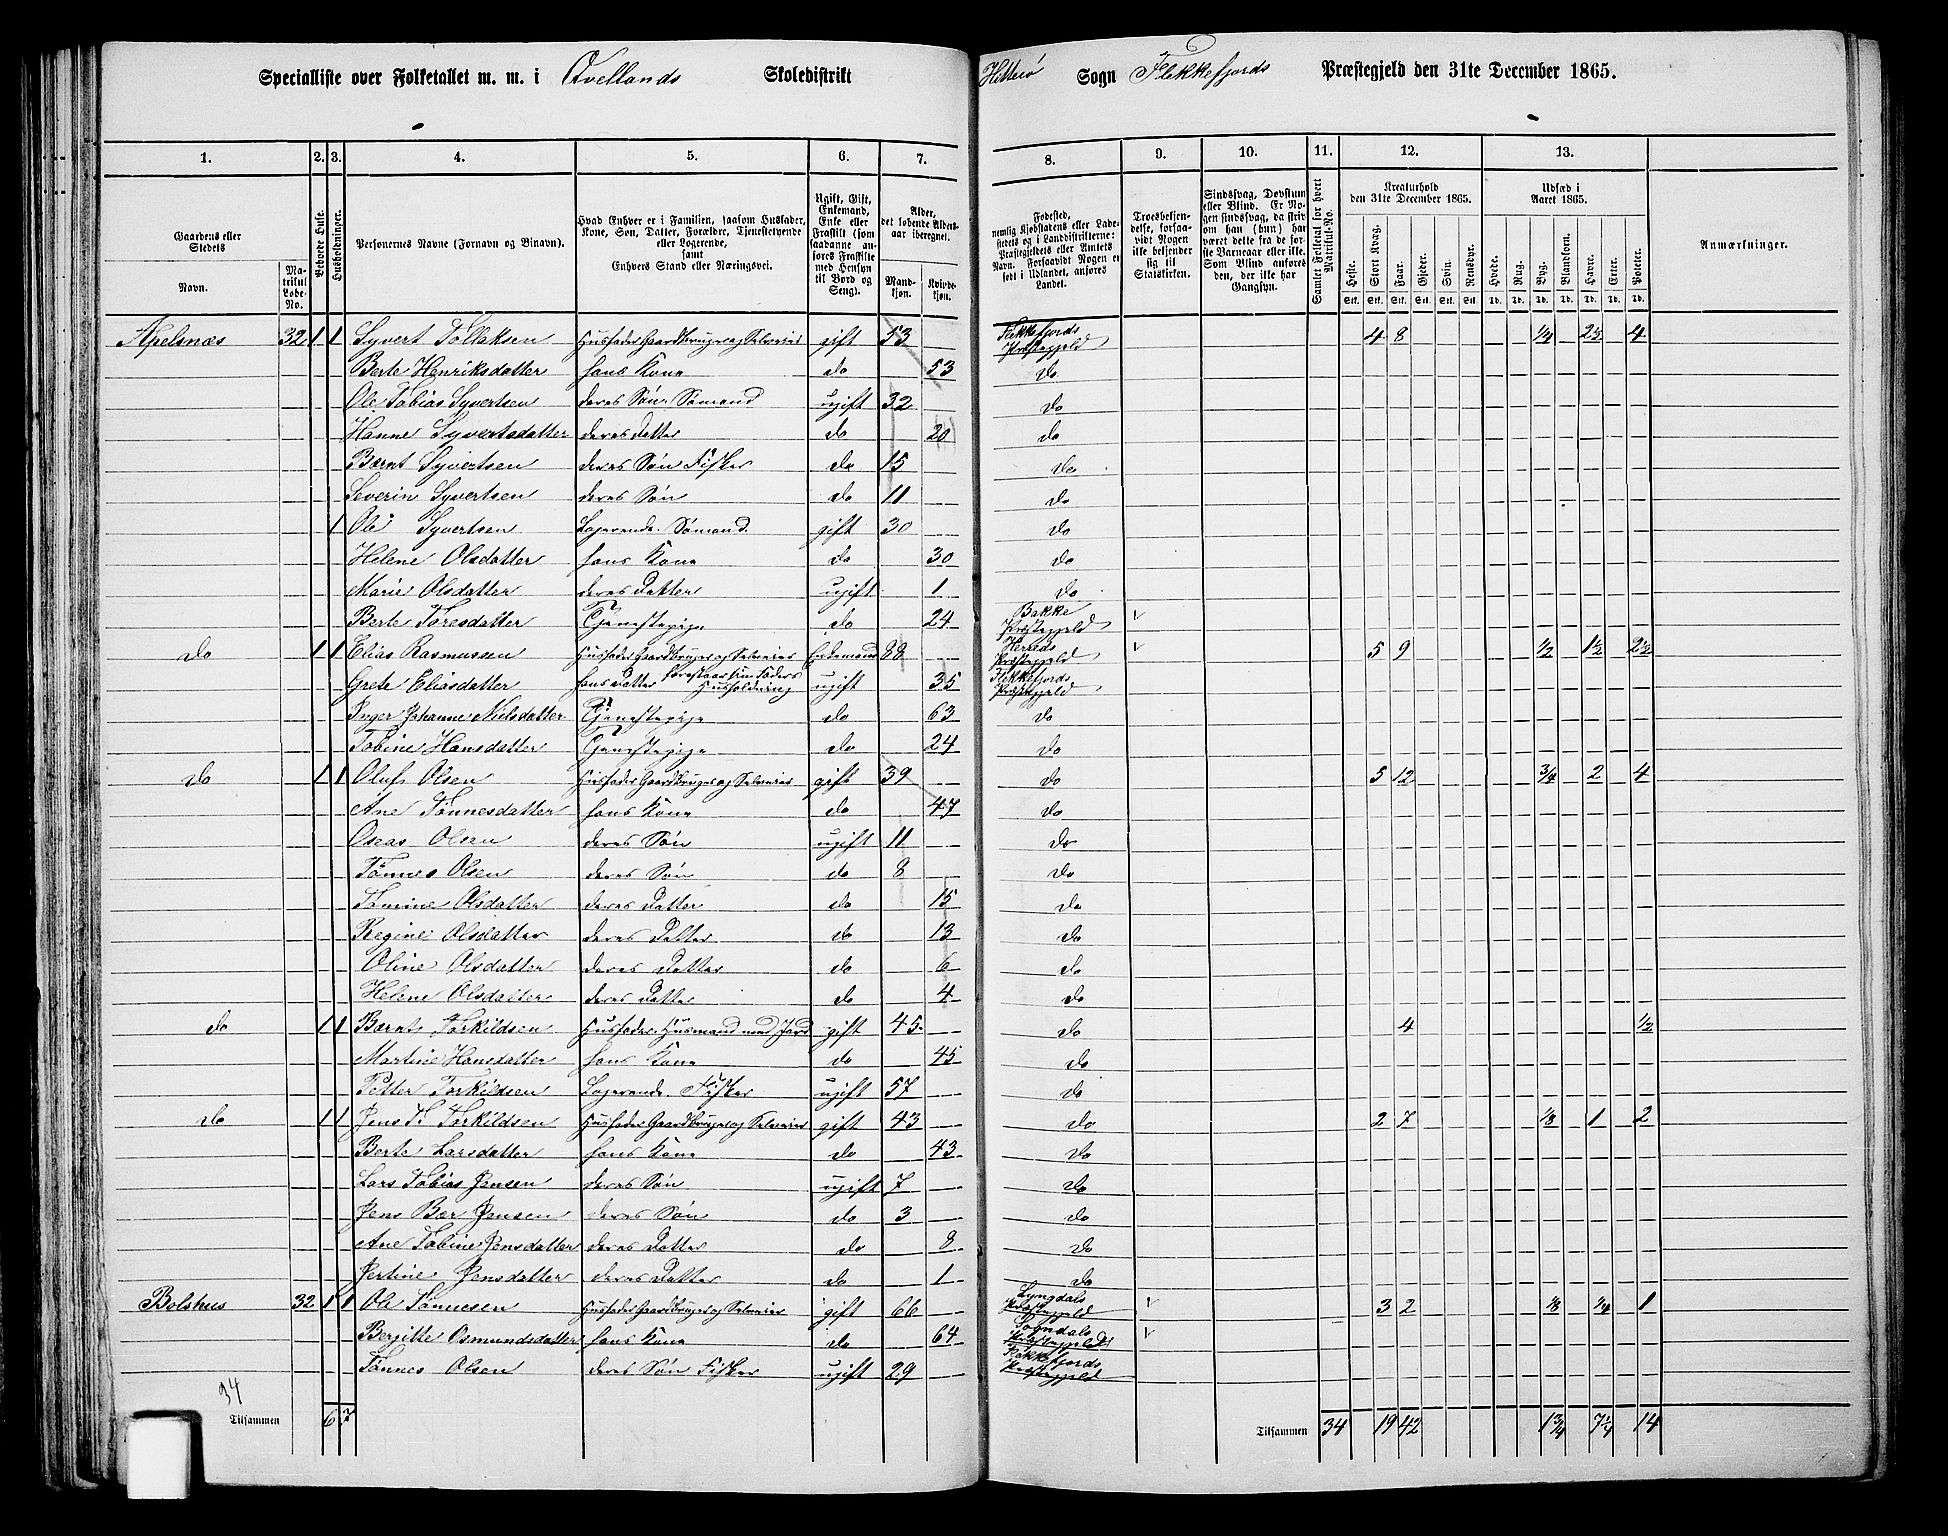 Specialliste over Folketallet m. m. i Qvellands Skoledistrikt Hitterø Sogn Flekkefjords Præstegjeld den 31te December 1865.
1. 2. 3. 4. 5. 6. 7. 8. 9. 10. 11. 12. 13.
Gaardens eller Stedets
Navn.
Matrikul Løbe-No.
Beboede Huse.
Husholdninger.
Personernes Navne (Fornavn og Binavn).
Hvad Enhver er i Familien, saasom Husfader, Kone, Søn, Datter, Forældre, Tjenestetyende eller Logerende, samt Enhvers Stand eller Næringsvei.
Ugift, Gift, Enkemand, Enke eller Fraskilt (som saadanne anføres Fraskilte med Hensyn til Bord og Seng).
Alder, det løbende Aldersaar iberegnet.
Mandkjøn. Kvindekjøn.
Fødested, nemlig Kjøbstadens eller Ladestedets og i Landdistrikterne: Præstegjeldets eller Amtets Navn. Forsaavidt Nogen er født i Udlandet, anføres Landet.
Troesbekjendelse, forsaavidt Nogen ikke bekjender sig til Statskirken.
Sindssvag, Døvstum eller Blind. Er Nogen sindssvag, da skriv om han (hun) har været dette fra de første Barneaar eller ikke. Som Blind anføres den, der ikke har Gangsyn.
Samlet Folketal for hvert Matrikul-No.
Kreaturhold den 31te December 1865.
Heste. Stort Kvæg. Faar. Gjeder. Svin. Rensdyr.
Udsæd i Aaret 1865.
Hvede. Rug. Byg. Blandkorn. Havre. Erter. Poteter.
Anmærkninger.
Apelsnæs 32 1 1 Syvert Tollaksen Husfader Gaardbruger og Selveier gift 53 Flekkefjords Præstegjeld 4 8 1/4 2 1/2 4
Berte Henriksdatter hans Kone do 53 do
Ole Tobias Syvertsen deres Søn Sømand ugift 32 do
Hanne Syvertsdatter deres Datter do 20 do
Bernt Syvertsen deres Søn Fisker do 15 do
Severin Syvertsen deres Søn do 11 do
1 Ole Syvertsen Logerende. Sømand. gift 30 do
Helene Olsdatter hans Kone do 30 do
Marie Olsdatter deres Datter ugift 1 do
Berte Toresdatter Tjenestepige do 24 Bakke Præstegjeld v
do 1 1 Elias Rasmussen Husfader Gaardbruger og Selveier Enkemand 88 Herreds Præstegjeld v 5 9 1/2 1 1/2 2 1/2
Grete Eliasdatter hans Datter forestaar sin Faders Husholdning ugift 35 Flekkefjords Præstegjeld
Inger Johanne Nielsdatter Tjenestepige do 63 do
Tobine Hansdatter Tjenestepige do 24 do
do 1 1 Oluf Olsen Husfader Gaardbruger og Selveier gift 39 do 5 12 3/4 2 4
Ane Tønnesdatter hans Kone do 47 do
Oseas Olsen deres Søn ugift 11 do
Tønnes Olsen deres Søn do 8 do
Tomine Olsdatter deres Datter do 15 do
Regine Olsdatter deres Datter do 13 do
Oline Olsdatter deres Datter do 6 do
Helene Olsdatter deres Datter do 4 do
do 1 1 Bernt Torkildsen Husfader. Husmand med Jord gift 45 do 4 1/2
Martine Hansdatter hans Kone do 45 do
Petter Torkildsen Logerende. Fisker ugift 57 do
do 1 1 Jens T. Torkildsen Husfader Gaardbruger og Selveier gift 43 do 2 7 1/8 1 2
Berte Larsdatter hans Kone do 43 do
Lars Tobias Jensen deres Søn ugift 7 do
Jens Bær Jensen deres Søn do 3 do
Ane Tobine Jensdatter deres Datter do 8 do
Jertine Jensdatter deres Datter do 1 do
Bolshus 32 1 1 Ole Tønnesen Husfader Gaardbruger og Selveier gift 66 Lyngdals Præstegjeld v 3 2 1/8 1/4 1
Bergitte Osmundsdatter hans Kone do 64 Sogndals Præstegjeld v
Tønnes Olsen deres Søn Fisker ugift 29 Flekkefjords Præstegjeld
34
Tilsammen 6 7 Tilsammen 34 19 42 1 3/4 7 1/4 14